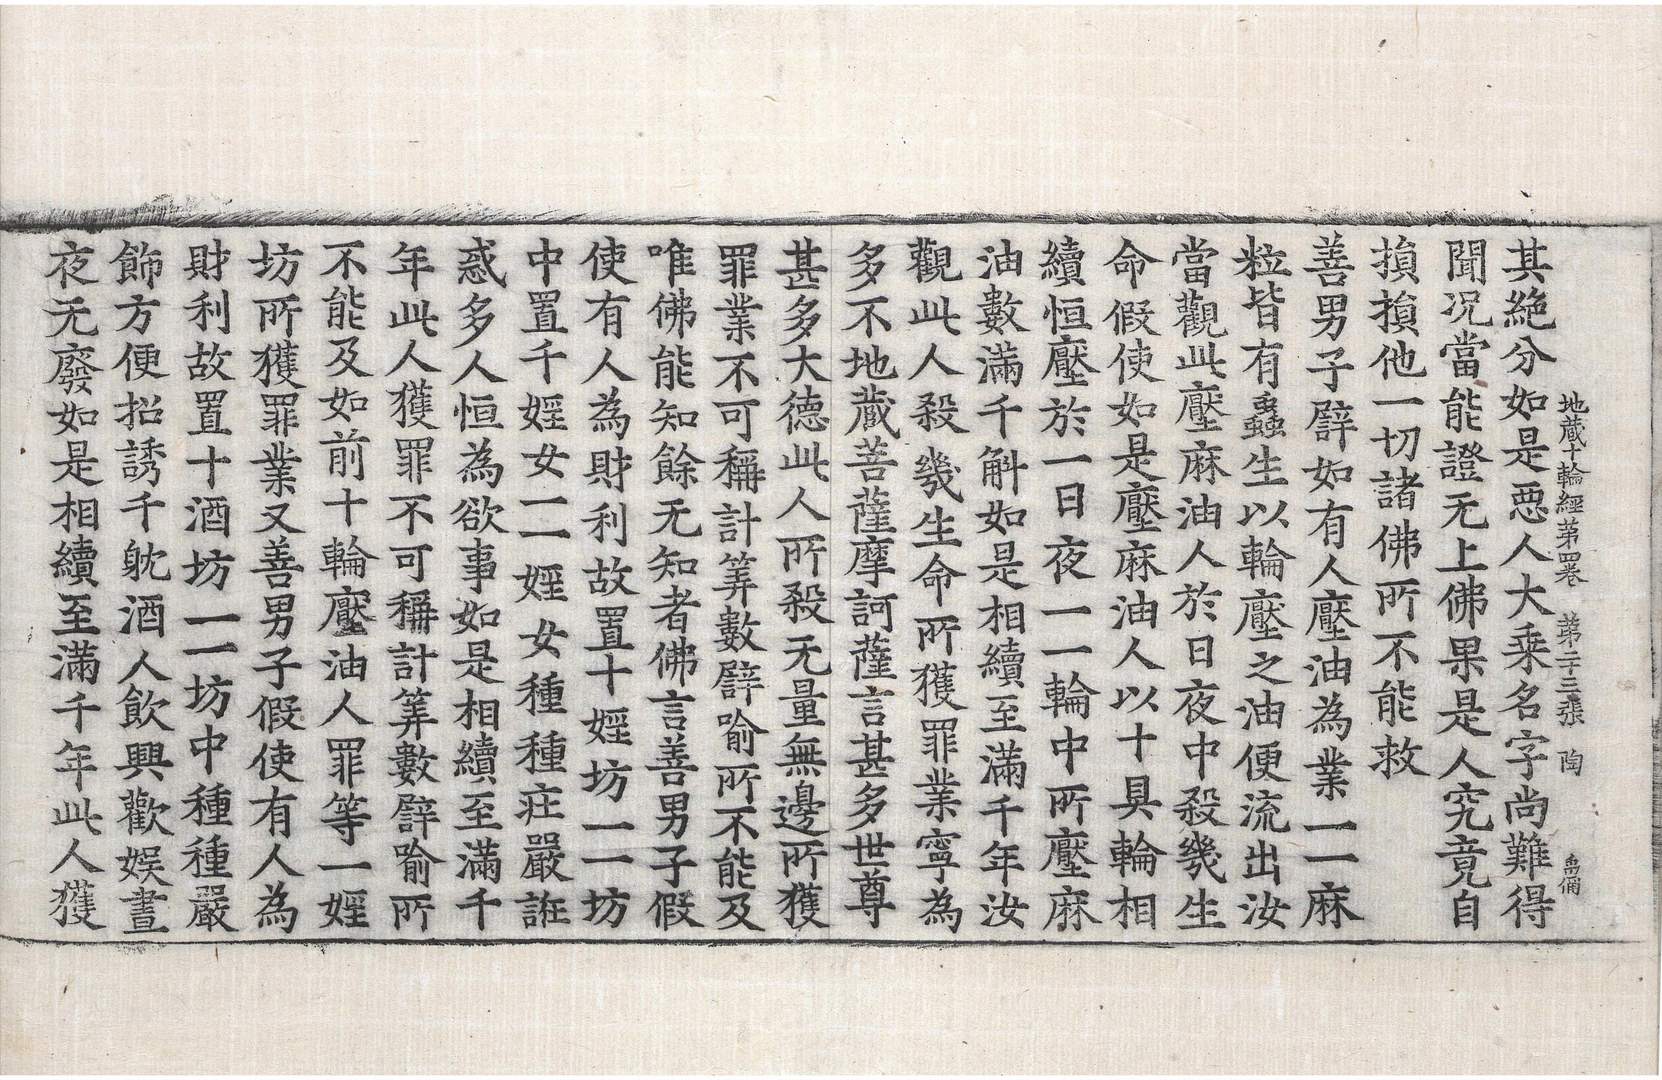 地藏十輪經第四卷　第二十三張　陶
其絶分如是惡人大乘名字尚難得
聞况當能證无上佛果是人究竟自
損損他一切諸佛所不能救
善男子譬如有人壓油為業一一麻
粒皆有蟲生以輪壓之油便流出汝
當觀此壓麻油人於日夜中殺幾生
命假使如是壓麻油人以十具輪相
續恒壓於一日夜一一輪中所壓麻
油數滿千斛如是相續至滿千年汝
觀此人殺幾生命所獲罪業寧為
多不地藏菩薩摩訶薩言甚多世尊
甚多大德此人所殺无量無邊所獲
罪業不可稱計筭數譬喻所不能及
唯佛能知餘无知者佛言善男子假
使有人為財利故置十婬坊一一坊
中置千婬女一一婬女種種莊嚴誑
惑多人恒為欲事如是相續至滿千
年此人獲罪不可稱計筭數譬喻所
不能及如前十輪壓油人罪等一婬
坊所獲罪業又善男子假使有人為
財利故置十酒坊一一坊中種種嚴
飾方便招誘千躭酒人飲興歡娛晝
夜无廢如是相續至滿千年此人獲